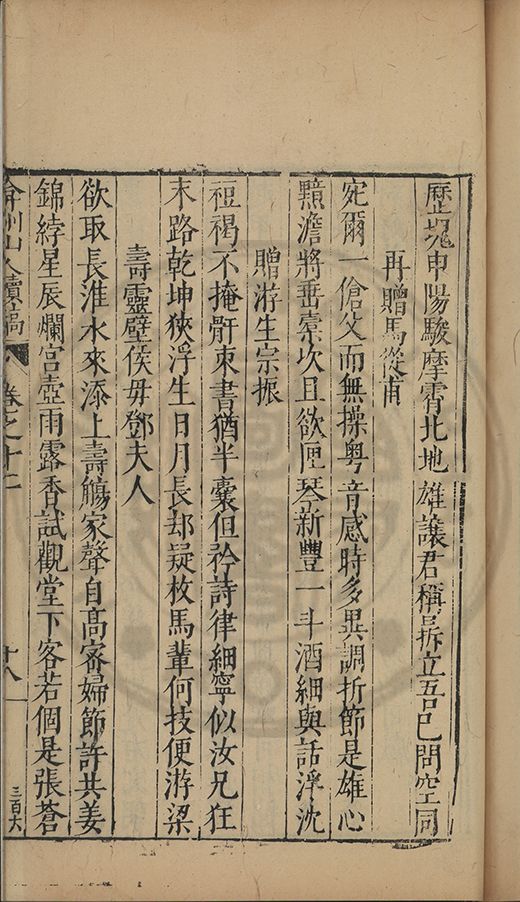 歷塊申陽駿摩霄北地雄讓君稱拆立吾已問空同
再贈馬從甫
宛爾一傖父而無操粤音感時多異調折節是雄心
黯澹將垂橐坎且欲匣琴新豐一斗酒細與話浮沈
贈游生宗振
裋褐不掩骭束書猶半囊但矜詩律細寧似汝兄狂
末路乾坤狹浮生日月長却疑枚馬輩何技便游梁
壽靈璧侯毋鄧夫人
欲取長淮水來添上壽觴家聲自高密婦節許共姜
錦綍星辰爛宮壺雨露香試觀堂下客若個是張蒼
弇州山人續稿
卷之十二
十八
三百六